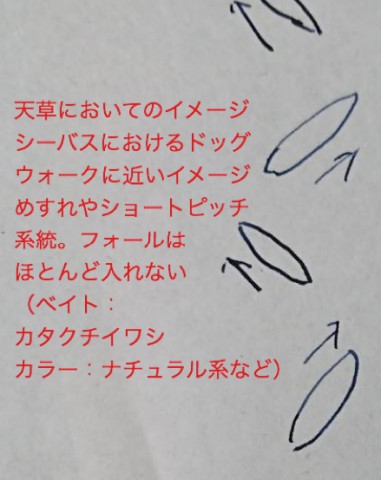 天草においてのイメージ
シーバスにおけるドッグ
ウォークに近いイメージ
めすれやショートピッチ
系統。フォールは
ほとんど入れない
（ベイト：
カタクチイワシ
カラー：ナチュラル系など）